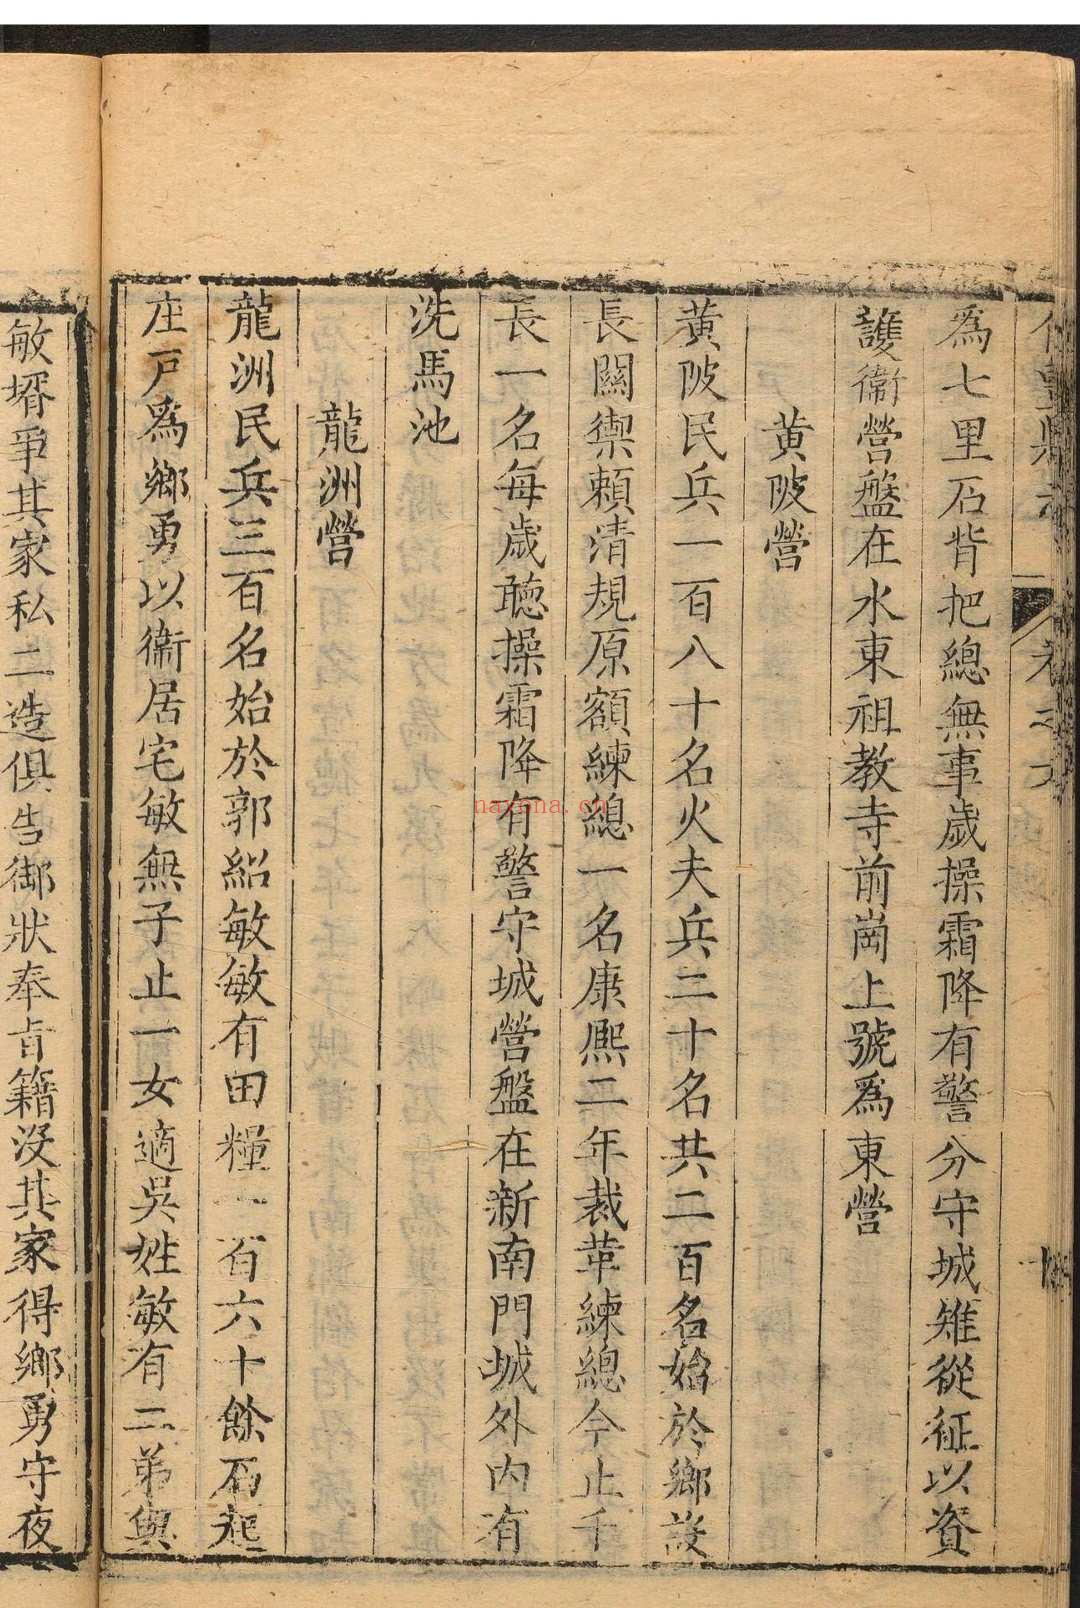 為七里石背把總無事歲操霜降有警分守城雉從征以資
護衞營盤在水東祖教寺前崗上號為東營
黃陂營
黃陂民兵一百八十名火夫兵二十名共二百名始於鄉設
長關禦賴清規原額練總一名康熙二年裁革練總今止千
長一名每歲聽操霜降有警守城營盤在新南門城外內有
洗馬池
龍洲營
龍洲民兵三百名始於郭紹敏敏有田糧一百六十餘石起
庄戶為鄉勇以衞居宅敏無子止一女適吳姓敏有二弟與
敏壻爭其家私二造俱告御狀奉旨籍沒其家得鄉勇守夜
naxona.cn